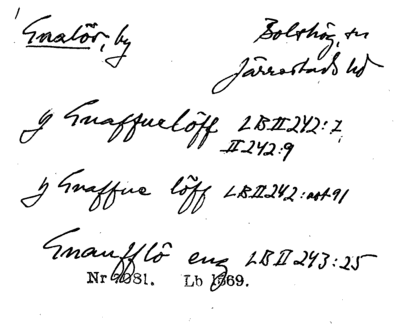 Gnalöv, by Bolshög, sn
Järrestads hd
y Gnaffuelöff LB II 242:7,
II 242:9
y Gnaffue löff LB II 242: not 91
Gnaufflö eng LB II 243:25
Nr 2081. Lb 1669.